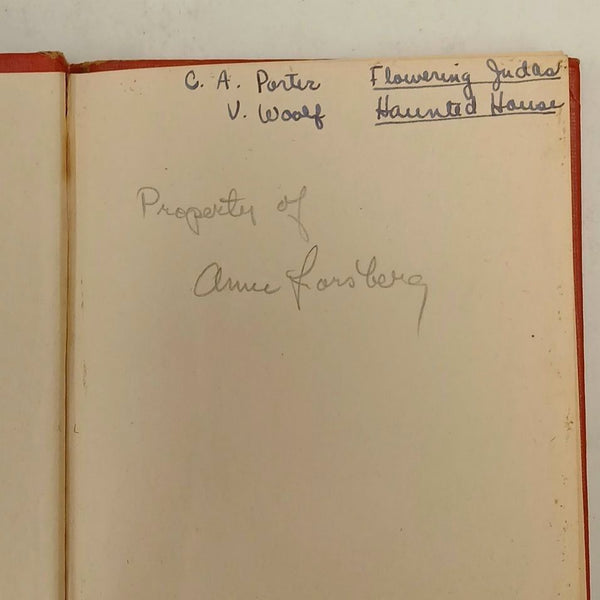 C. A. Porter Flowering Judas
V. Woolf Haunted House
Property of
Anne Forsberg